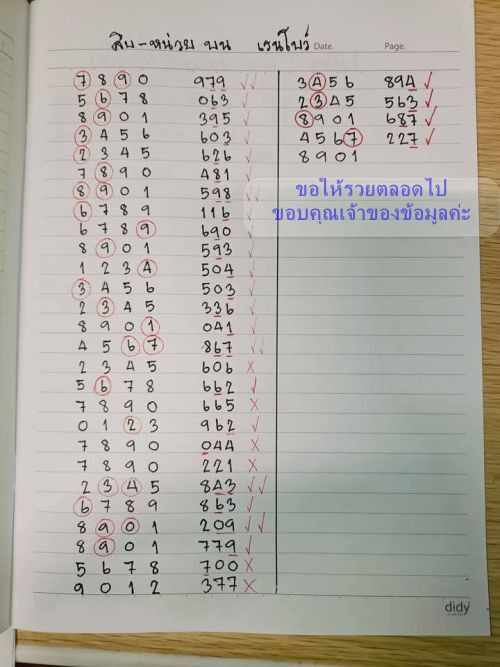 สิบ-หน่วย บน เรนโบว์ Date. Page.
7 8 9 0 979 ✓✓
5 6 7 8 063 ✓
8 9 0 1 395 ✓
3 4 5 6 603 ✓
2 3 4 5 626 ✓
7 8 9 0 481 ✓
8 9 0 1 598 ✓✓
6 7 8 9 116 ✓
6 7 8 9 690 ✓
8 9 0 1 593 ✓
1 2 3 4 504 ✓
3 4 5 6 503 ✓
2 3 4 5 336 ✓
8 9 0 1 041 ✓
4 5 6 7 867 ✓✓
2 3 4 5 606 ×
5 6 7 8 662 ✓
7 8 9 0 665 ×
0 1 2 3 962 ✓
7 8 9 0 044 ×
7 8 9 0 221 ×
2 3 4 5 843 ✓✓
6 7 8 9 863 ✓
8 9 0 1 209 ✓✓
8 9 0 1 779 ✓
5 6 7 8 700 ×
9 0 1 2 377 ×
3 4 5 6 894 ✓
2 3 4 5 563 ✓
8 9 0 1 687 ✓
4 5 6 7 227 ✓
8 9 0 1
ขอให้รวยตลอดไป
ขอบคุณเจ้าของข้อมูลค่ะ
didy